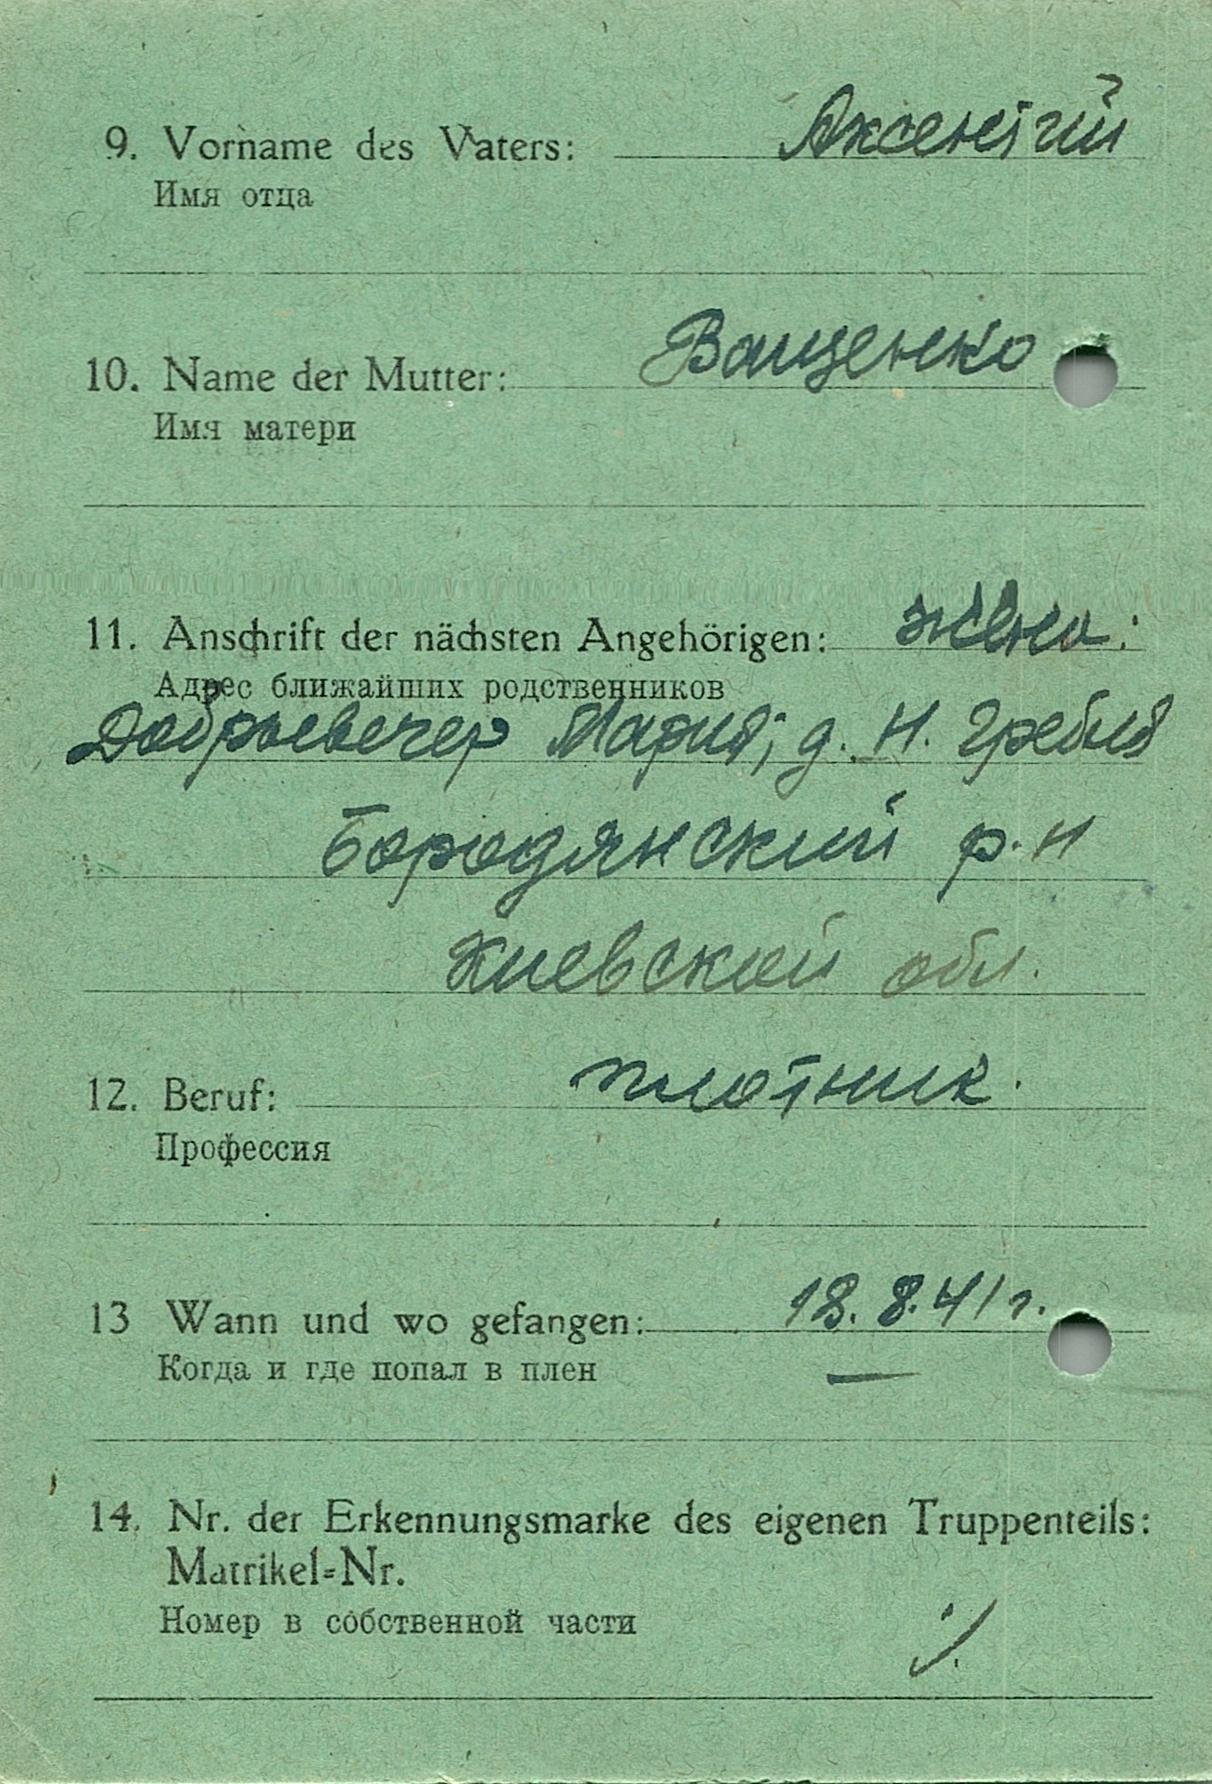 9. Vorname des Vaters: Аксентий
Имя отца
10. Name der Mutter: Ващенко
Имя матери
11. Anschrift der nächsten Angehörigen: жена:
Адрес ближайших родственников
Добрывечер Мария; д. Н. Гребля
Бородянский р-н
Киевской обл.
12. Beruf: плотник.
Профессия
13 Wann und wo gefangen: 18. 8. 41 г.
Когда и где попал в плен
—
14. Nr. der Erkennungsmarke des eigenen Truppenteils:
Matrikel=Nr.
Номер в собственной части
./.